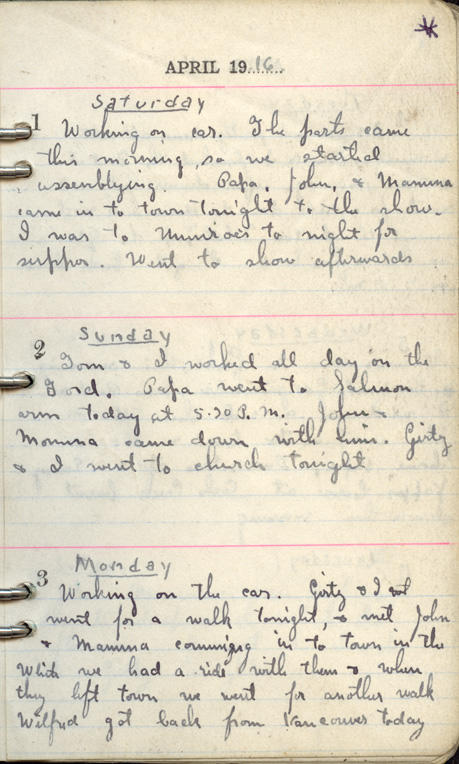 APRIL 1916
Saturday
1 Working on car. The parts came
this morning, so we started
assemblying. Papa, John, & Mamma
came in to town tonight to the show.
I was to Munroes to night for
suppor. Went to show afterwards
Sunday
2 Tom & I worked all day on the
Ford. Papa went to Salmon
arm today at 5.20 P.M. John &
Momma came down with him. Girty
& I went to church tonight
Monday
3 Working on the car. Girty & I
went for a walk tonight, & met John
& Mamma comming in to town in the
Which we had a ride with them & when
they left town we went for another walk
Wilfred got back from Vancouver today